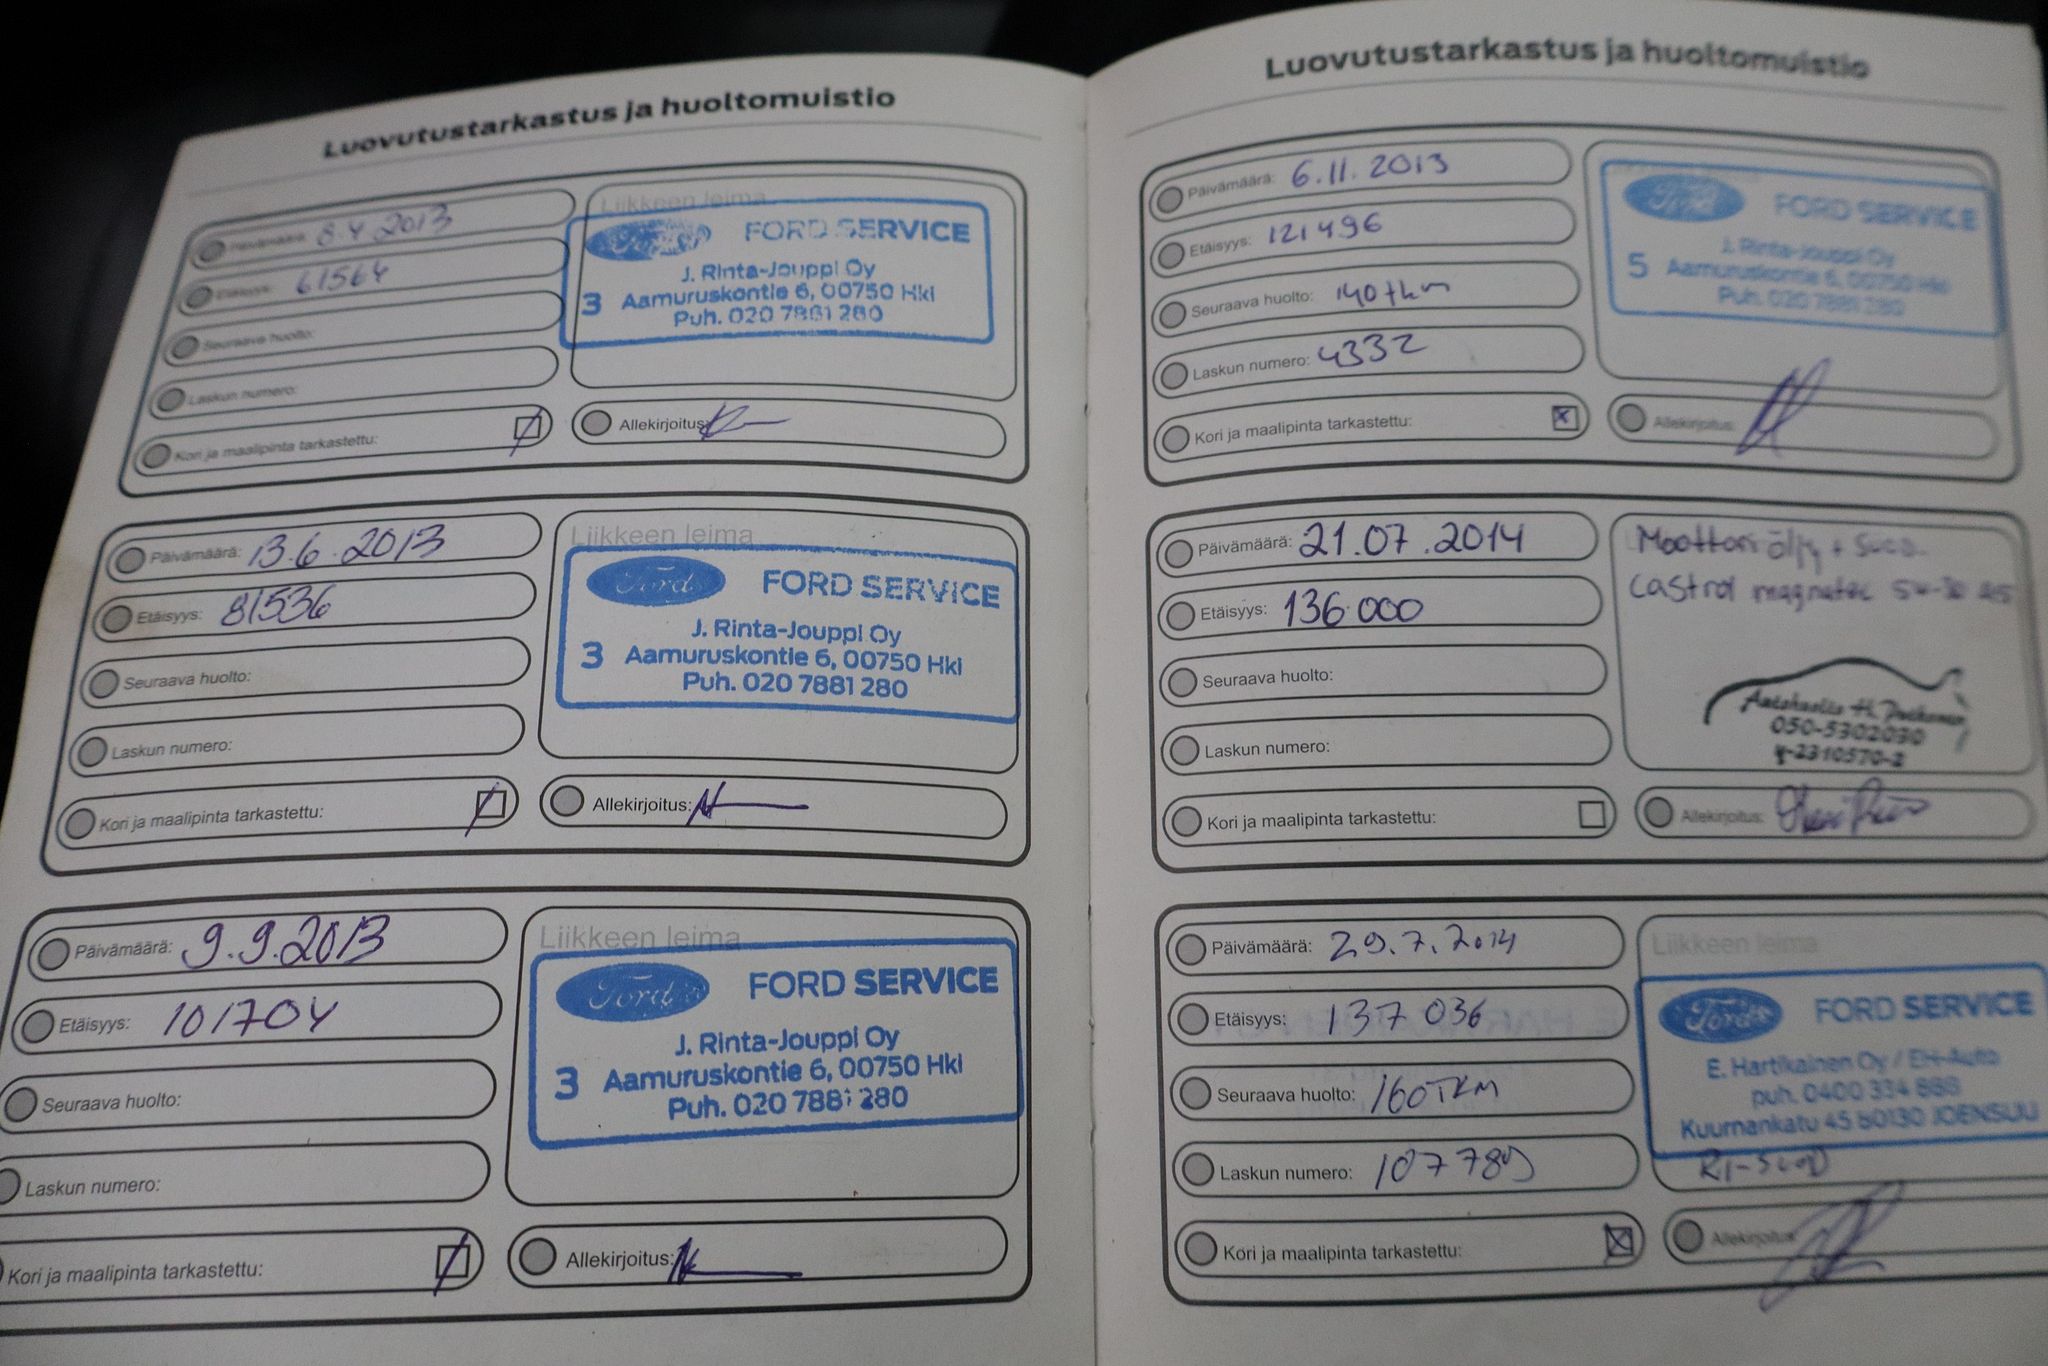 Luovutustarkastus ja huoltomuistio
Päivämäärä: 8.4.2013
Etäisyys: 61564
Seuraava huolto:
Laskun numero:
Kori ja maalipinta tarkastettu:
Liikkeen leima
Ford FORD SERVICE
J. Rinta-Jouppi Oy
3 Aamuruskontie 6, 00750 Hki
Puh. 020 7881 280
Allekirjoitus:
Päivämäärä: 13.6.2013
Etäisyys: 81536
Seuraava huolto:
Laskun numero:
Kori ja maalipinta tarkastettu:
Liikkeen leima
Ford FORD SERVICE
J. Rinta-Jouppi Oy
3 Aamuruskontie 6, 00750 Hki
Puh. 020 7881 280
Allekirjoitus:
Päivämäärä: 9.9.2013
Etäisyys: 101704
Seuraava huolto:
Laskun numero:
Kori ja maalipinta tarkastettu:
Liikkeen leima
Ford FORD SERVICE
J. Rinta-Jouppi Oy
3 Aamuruskontie 6, 00750 Hki
Puh. 020 7881 280
Allekirjoitus:
Luovutustarkastus ja huoltomuistio
Päivämäärä: 6.11.2013
Etäisyys: 121496
Seuraava huolto: 140tkm
Laskun numero: 4332
Kori ja maalipinta tarkastettu:
Ford FORD SERVICE
J. Rinta-Jouppi Oy
5 Aamuruskontie 6, 00750 Hki
Puh. 020 7881 280
Allekirjoitus:
Päivämäärä: 21.07.2014
Etäisyys: 136.000
Seuraava huolto:
Laskun numero:
Kori ja maalipinta tarkastettu:
Moottoriöljy + suod.
Castrol magnatec 5w-30 A5
Autohuolto H.
050-5302030
y-2310570-2
Allekirjoitus:
Päivämäärä: 29.7.2014
Etäisyys: 137 036
Seuraava huolto: 160TKM
Laskun numero: 107789
Kori ja maalipinta tarkastettu:
Liikkeen leima
Ford FORD SERVICE
E. Hartikainen Oy / EH-Auto
puh. 0400 334 888
Kuurnankatu 45 80130 JOENSUU
Allekirjoitus: